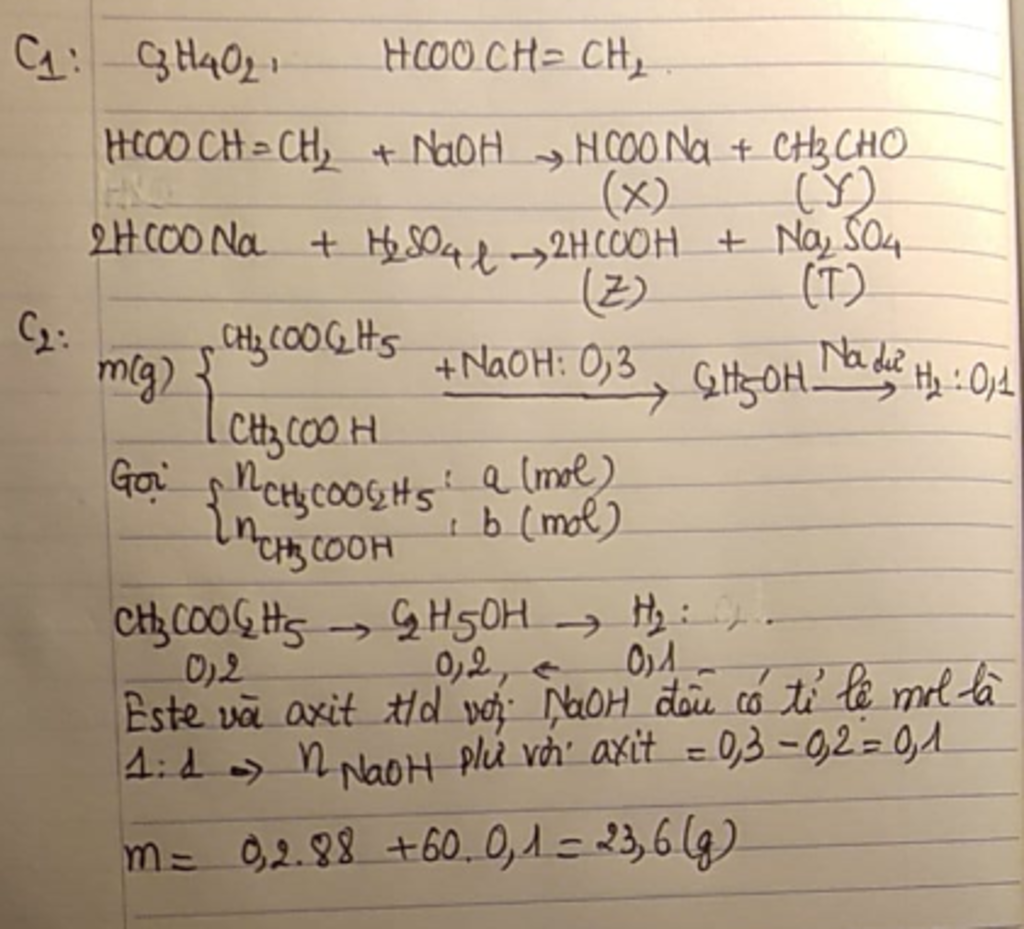 C1: C3H4O2, HCOOCH=CH2
HCOOCH=CH2 + NaOH → HCOONa + CH3CHO
(X) (Y)
2HCOONa + H2SO4 l → 2HCOOH + Na2SO4
(Z) (T)
C2:
m(g) { CH3COOC2H5 +NaOH: 0,3 → C2H5OH Na dư → H2: 0,1
CH3COOH
Gọi { nCH3COOC2H5 : a (mol)
nCH3COOH : b (mol)
CH3COOC2H5 → C2H5OH → H2:
0,2 0,2 ← 0,1
Este và axit t/d với NaOH đều có tỉ lệ mol là
1:1 => n NaOH pư với axit = 0,3 - 0,2 = 0,1
m = 0,2.88 + 60.0,1 = 23,6 (g)